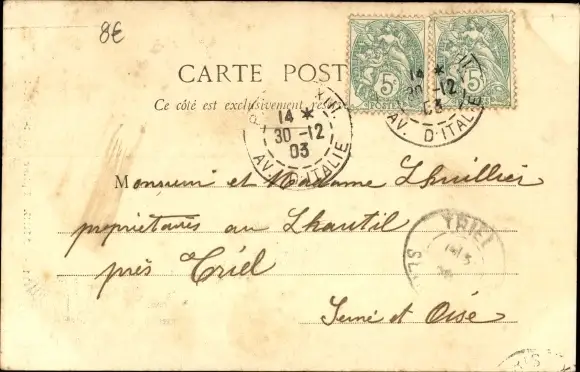 8€
5c 5c
POSTES
CARTE POST
Ce côté est exclusivement rése
PARIS XIII
14 *
30 -12
03
AV. D'ITALIE
14 *
30 -12
03
AV. D'ITALIE
Monsieur et Madame Lhuillier
propriétaires au Lhautil
près Triel
Seine et Oise
TRIEL